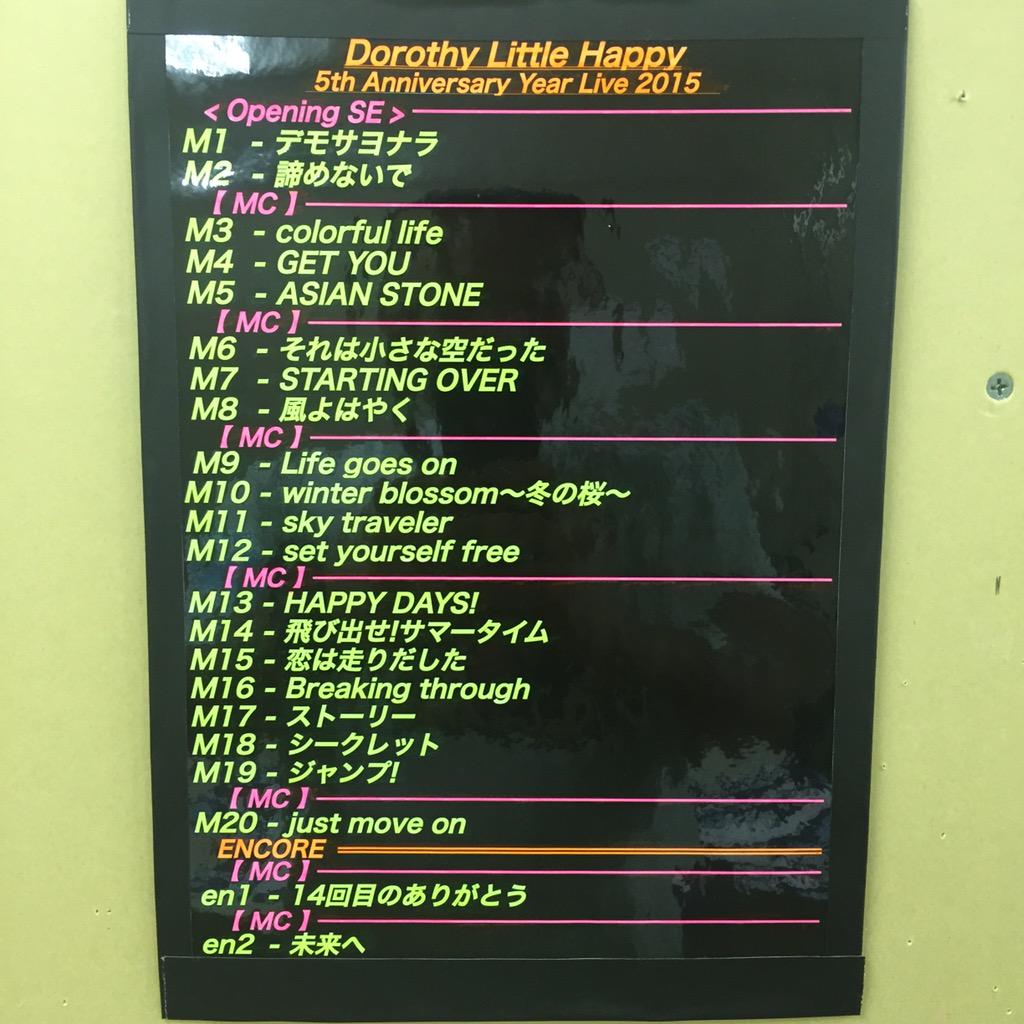 Dorothy Little Happy
5th Anniversary Year Live 2015
< Opening SE >
M1 - デモサヨナラ
M2 - 諦めないで
【 MC 】
M3 - colorful life
M4 - GET YOU
M5 - ASIAN STONE
【 MC 】
M6 - それは小さな空だった
M7 - STARTING OVER
M8 - 風よはやく
【 MC 】
M9 - Life goes on
M10 - winter blossom～冬の桜～
M11 - sky traveler
M12 - set yourself free
【 MC 】
M13 - HAPPY DAYS!
M14 - 飛び出せ!サマータイム
M15 - 恋は走りだした
M16 - Breaking through
M17 - ストーリー
M18 - シークレット
M19 - ジャンプ!
【 MC 】
M20 - just move on
ENCORE
【 MC 】
en1 - 14回目のありがとう
【 MC 】
en2 - 未来へ